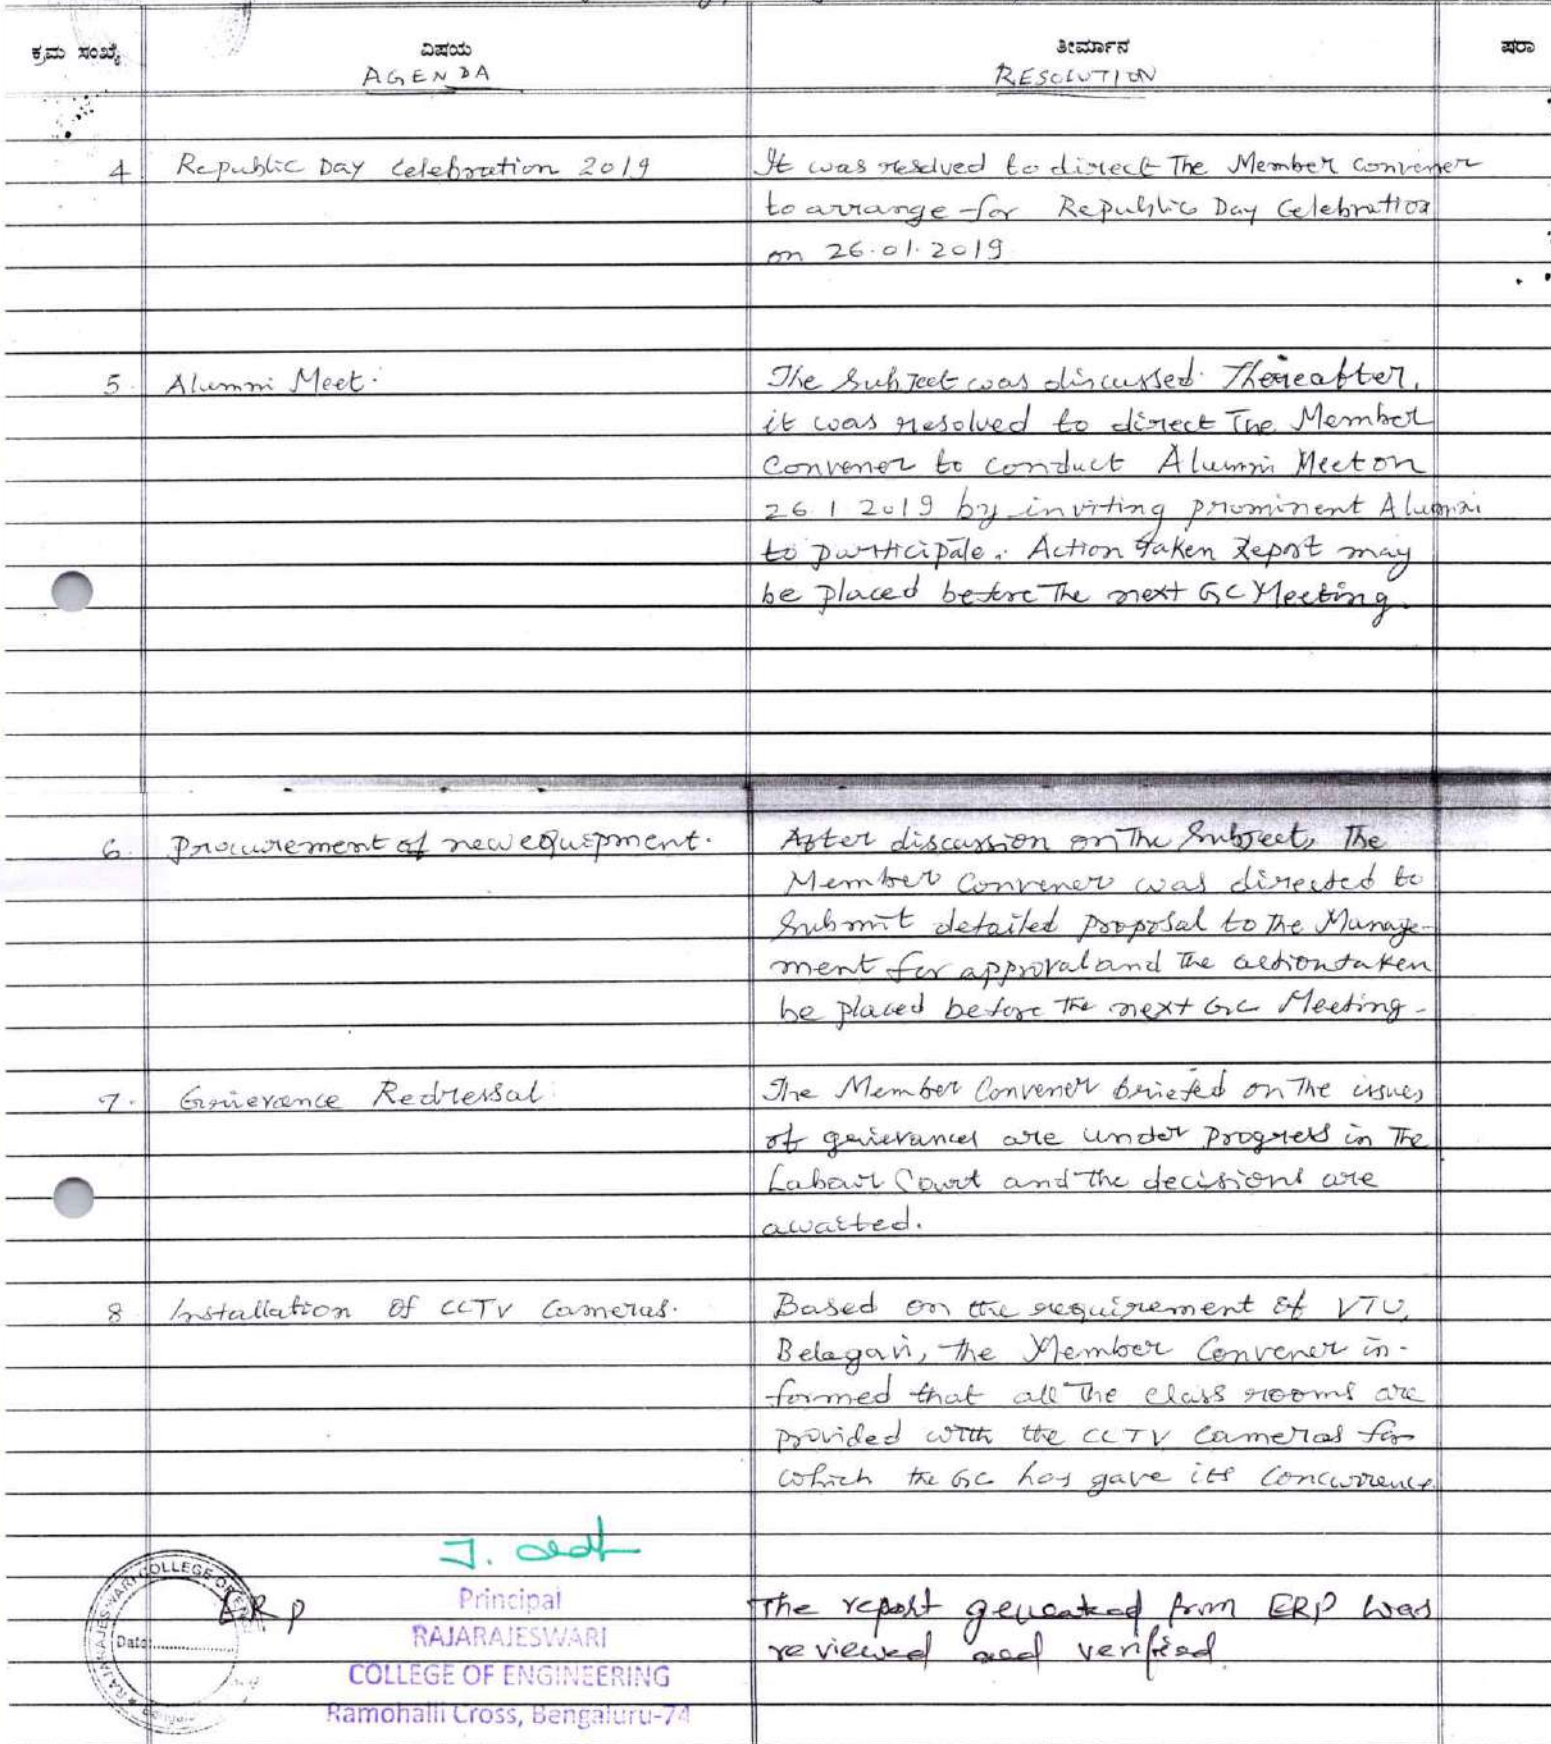 ಕ್ರಮ ಸಂಖ್ಯೆ ವಿಷಯ ತೀರ್ಮಾನ ಷರಾ
AGENDA RESOLUTION
4 Republic Day Celebration 2019 It was resolved to direct The Member Convener
to arrange for Republic Day Celebration
on 26.01.2019
5. Alumni Meet. The Subject was discussed. Thereafter,
it was resolved to direct The Member
Convener to conduct Alumni Meet on
26.1 2019 by inviting prominent Alumni
to participate. Action taken Report may
be placed before The next GC Meeting.
6. Procurement of new equipment. After discussion on The Subject, The
Member Convener was directed to
Submit detailed proposal to The Manage-
ment for approval and The action taken
be placed before The next GC Meeting.
7. Grievance Redressal. The Member Convener briefed on The issues
of grievances are under progress in The
Labour Court and The decisions are
awaited.
8 Installation of CCTV Cameras. Based on the requirement of VTU,
Belagavi, the Member Convener in-
formed that all The class rooms are
provided with the CCTV Cameras for
which the GC has gave its Concurrence.
ERP The report generated from ERP was
reviewed and verified.
Principal
RAJARAJESWARI
COLLEGE OF ENGINEERING
Ramohalli Cross, Bengaluru-74
RAJARAJESWARI COLLEGE OF
Date: